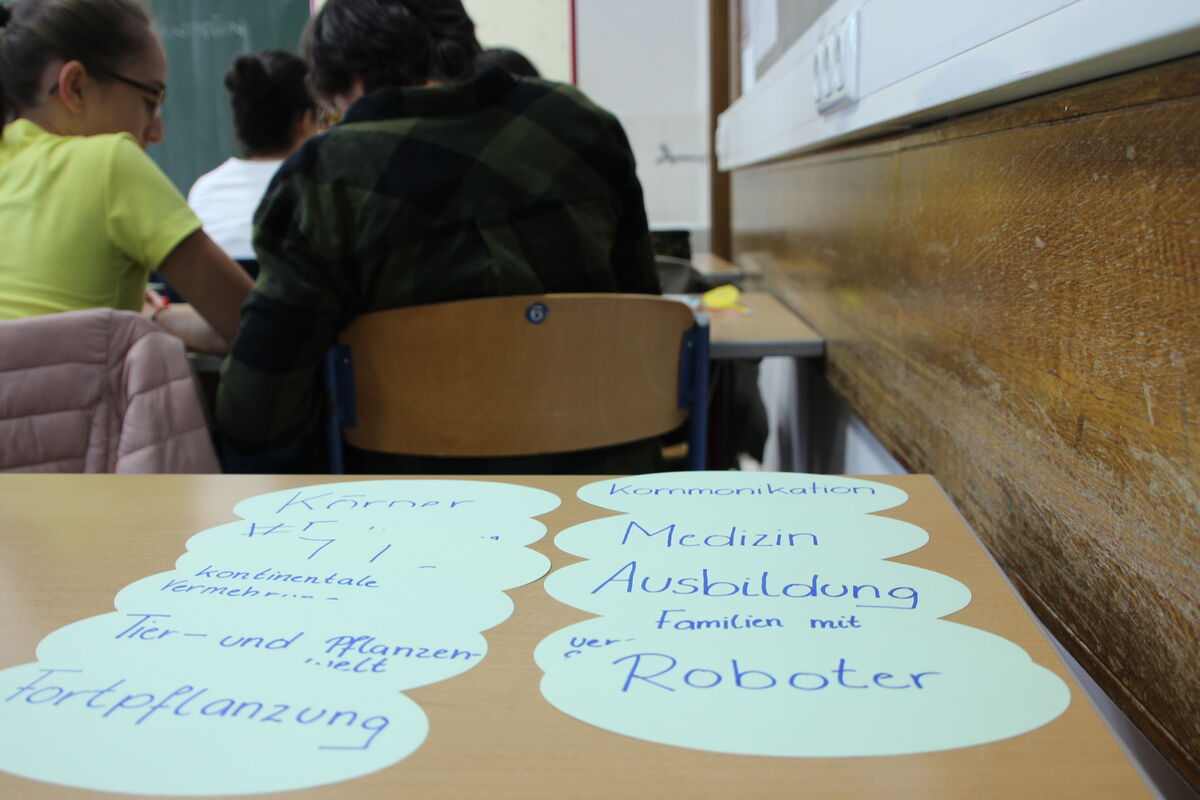 6
Körner
kontinentale
Tier- und Pflanzen-
welt
Fortpflanzung
Kommonikation
Medizin
Ausbildung
Familien mit
ver-
Roboter